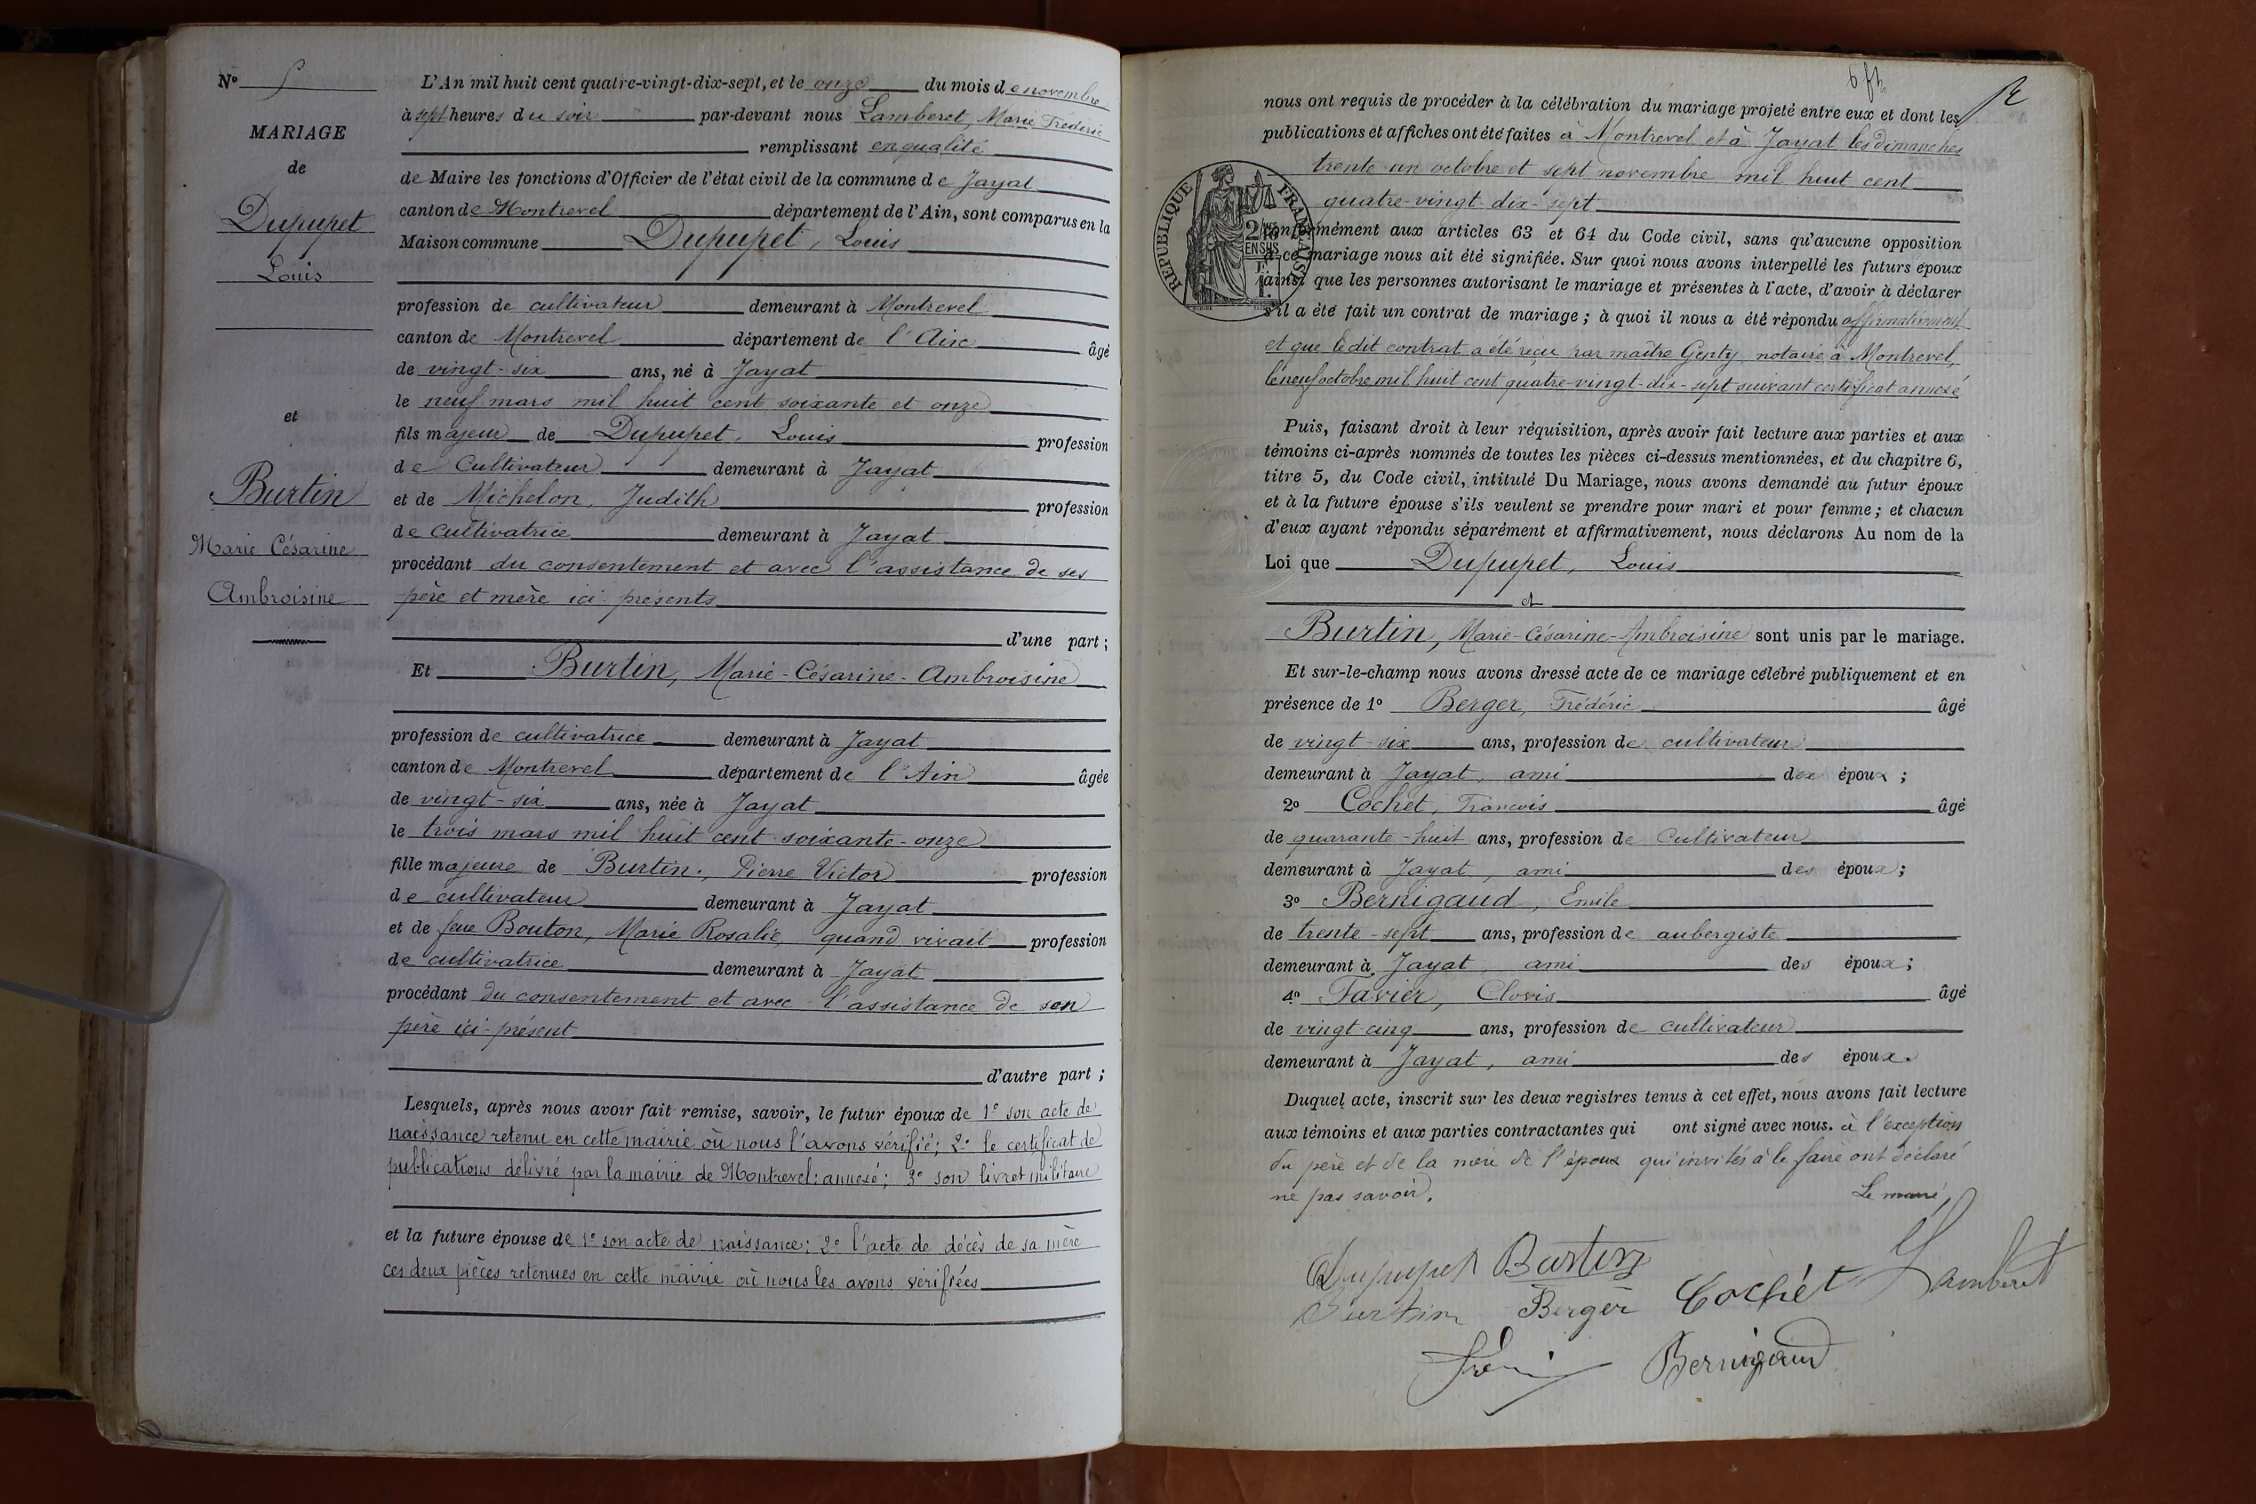 N° 5
MARIAGE
de
Dupupet
Louis
et
Burtin
Marie Césarine
Ambroisine
L'An mil huit cent quatre-vingt-dix-sept, et le onze du mois de novembre
à sept heures du soir par-devant nous Lamberet, Marie Frédéric
remplissant en qualité
de Maire les fonctions d'Officier de l'état civil de la commune de Jayat
canton de Montrevel département de l'Ain, sont comparus en la
Maison commune Dupupet, Louis
profession de cultivateur demeurant à Montrevel
canton de Montrevel département de l'Ain âgé
de vingt-six ans, né à Jayat
le neuf mars mil huit cent soixante et onze
fils majeur de Dupupet, Louis profession
de Cultivateur demeurant à Jayat
et de Michelon, Judith profession
de cultivatrice demeurant à Jayat
procédant du consentement et avec l'assistance de ses
père et mère ici présents
d'une part ;
Et Burtin, Marie-Césarine-Ambroisine
profession de cultivatrice demeurant à Jayat
canton de Montrevel département de l'Ain âgée
de vingt-six ans, née à Jayat
le trois mars mil huit cent soixante-onze
fille majeure de Burtin, Pierre Victor profession
de cultivateur demeurant à Jayat
et de feue Bouton, Marie Rosalie, quand vivait profession
de cultivatrice demeurant à Jayat
procédant du consentement et avec l'assistance de son
père ici présent
d'autre part ;
Lesquels, après nous avoir fait remise, savoir, le futur époux de 1° son acte de
naissance retenu en cette mairie où nous l'avons vérifié; 2° le certificat de
publications délivré par la mairie de Montrevel: annexé; 3° son livret militaire
et la future épouse de 1° son acte de naissance; 2° l'acte de décès de sa mère
ces deux pièces retenues en cette mairie où nous les avons vérifiées
nous ont requis de procéder à la célébration du mariage projeté entre eux et dont les
publications et affiches ont été faites à Montrevel et à Jayat les dimanches
trente-un octobre et sept novembre mil huit cent
quatre-vingt-dix-sept
REPUBLIQUE FRANÇAISE
conformément aux articles 63 et 64 du Code civil, sans qu'aucune opposition
à ce mariage nous ait été signifiée. Sur quoi nous avons interpellé les futurs époux
ainsi que les personnes autorisant le mariage et présentes à l'acte, d'avoir à déclarer
s'il a été fait un contrat de mariage ; à quoi il nous a été répondu affirmativement
et que le dit contrat a été reçu par maître Genty, notaire à Montrevel,
le neuf octobre mil huit cent quatre-vingt-dix-sept suivant certificat annexé
Puis, faisant droit à leur réquisition, après avoir fait lecture aux parties et aux
témoins ci-après nommés de toutes les pièces ci-dessus mentionnées, et du chapitre 6,
titre 5, du Code civil, intitulé Du Mariage, nous avons demandé au futur époux
et à la future épouse s'ils veulent se prendre pour mari et pour femme ; et chacun
d'eux ayant répondu séparément et affirmativement, nous déclarons Au nom de la
Loi que Dupupet, Louis
et
Burtin, Marie-Césarine-Ambroisine sont unis par le mariage.
Et sur-le-champ nous avons dressé acte de ce mariage célébré publiquement et en
présence de 1° Berger, Frédéric âgé
de vingt-six ans, profession de cultivateur
demeurant à Jayat, ami des époux ;
2° Cochet, François âgé
de quarante-huit ans, profession de Cultivateur
demeurant à Jayat, ami des époux ;
3° Bernigaud, Emile
de trente-sept ans, profession de aubergiste
demeurant à Jayat, ami des époux ;
4° Favier, Clovis âgé
de vingt-cinq ans, profession de cultivateur
demeurant à Jayat, ami des époux.
Duquel acte, inscrit sur les deux registres tenus à cet effet, nous avons fait lecture
aux témoins et aux parties contractantes qui ont signé avec nous. à l'exception
du père et de la mère de l'époux qui invités à le faire ont déclaré
ne pas savoir.
Le maire,
Dupupet Burtin
Burtin Berger Cochet Lamberet
Bernigaud